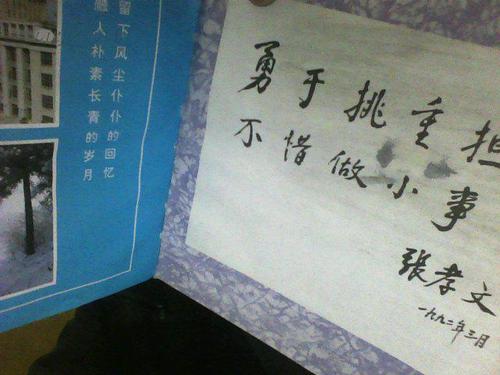 留下风尘仆仆的回忆
人朴素长青的岁月
勇于挑重担
不惜做小事
张孝文
一九九二年三月